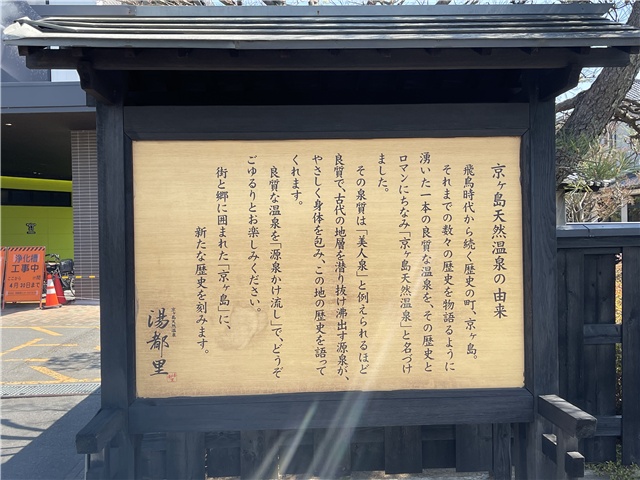 京ヶ島天然温泉の由来
飛鳥時代から続く歴史の町、京ヶ島。
それまでの数々の歴史を物語るように
湧いた一本の良質な温泉を、その歴史と
ロマンにちなみ「京ヶ島天然温泉」と名づけ
ました。
その泉質は「美人泉」と例えられるほど
良質で、古代の地層を潜り抜け沸出す源泉が、
やさしく身体を包み、この地の歴史を語って
くれます。
良質な温泉を「源泉かけ流し」で、どうぞ
ごゆるりとお楽しみください。
街と郷に囲まれた「京ヶ島」に、
新たな歴史を刻みます。
京ヶ島天然温泉
湯都里
浄化槽
工事中
4月30日まで